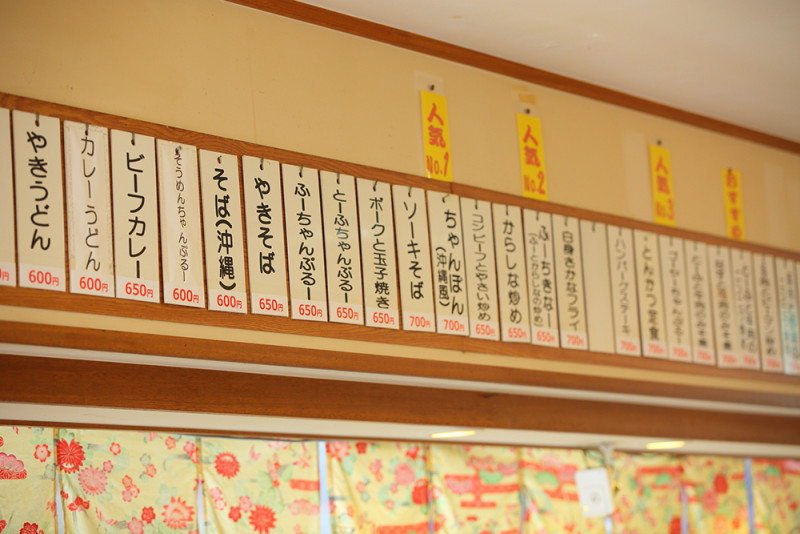 人気
No.1
人気
No.2
人気
No.3
おすすめ
やきうどん
600円
カレーうどん
600円
ビーフカレー
650円
そうめんちゃんぷるー
600円
そば(沖縄)
600円
やきそば
650円
ふーちゃんぷるー
650円
とーふちゃんぷるー
650円
ポークと玉子焼き
650円
ソーキそば
700円
ちゃんぽん
(沖縄風)
700円
コンビーフとやさい炒め
650円
からしな炒め
650円
ふーちきなー
(ふーとからしなの炒め)
650円
白身さかなフライ
700円
ハンバーグステーキ
700円
とんかつ定食
700円